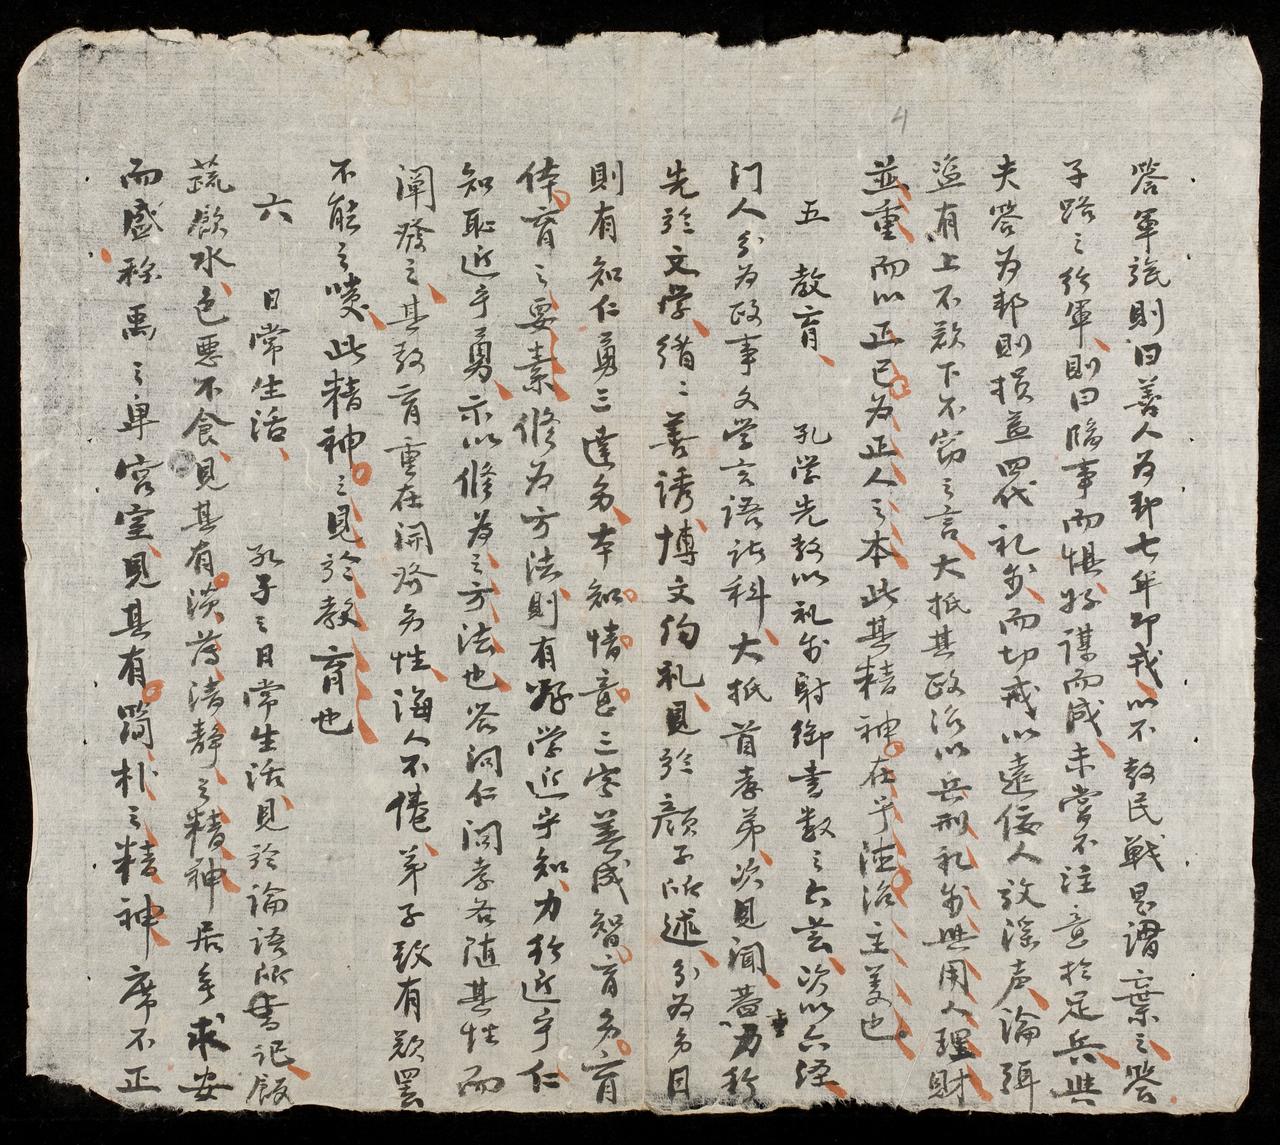 4
答軍旅則曰善人为邦七年即戎以不教民戰是謂棄之答
子路之行軍則曰臨事而惧好謀而成未嘗不注意於足兵與
夫答为邦則损益四代礼乐而切戒以遠佞人放淫声論弭
盗有上不欲下不窃之言大抵其政治以兵刑礼乐與用人理財
並重而以正己为正人之本此其精神在乎德治主义也
五 教育 孔学先教以礼乐射御書数之六芸次以六經
门人分为政事文学言语诸科大抵首孝弟次見聞蓋重力行
先於文学循〻善诱博文约礼見於颜子所述分为多目
則有知仁勇三達多本知情意三字養成智育多育
体育之要素修为方法則有好学近乎知力行近乎仁
知恥近乎勇示以修为之方法也答问仁问孝各随其性而
闡發之其教育重在開发多性誨人不倦弟子致有欲罢
不能之嘆此精神之見於教育也
六 日常生活 孔子之日常生活見於論語所書记飯
蔬飲水色惡不食見其有淡薄清静之精神居無求安
而盛称禹之卑宫室見其有简朴之精神席不正